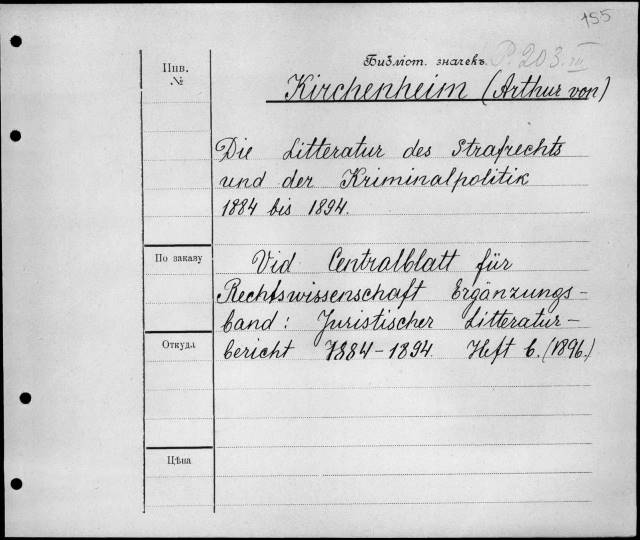 155
Библіот. значекъ P. 203. III
Инв.
№
Kirchenheim (Arthur von)
Die Litteratur des Strafrechts
und der Kriminalpolitik
1884 bis 1894.
По заказу
Vid Centralblatt für
Rechtswissenschaft Ergänzungs-
band: Juristischer Litteratur-
Откуда
bericht 1884-1894. Heft 6. (1896.)
Цѣна